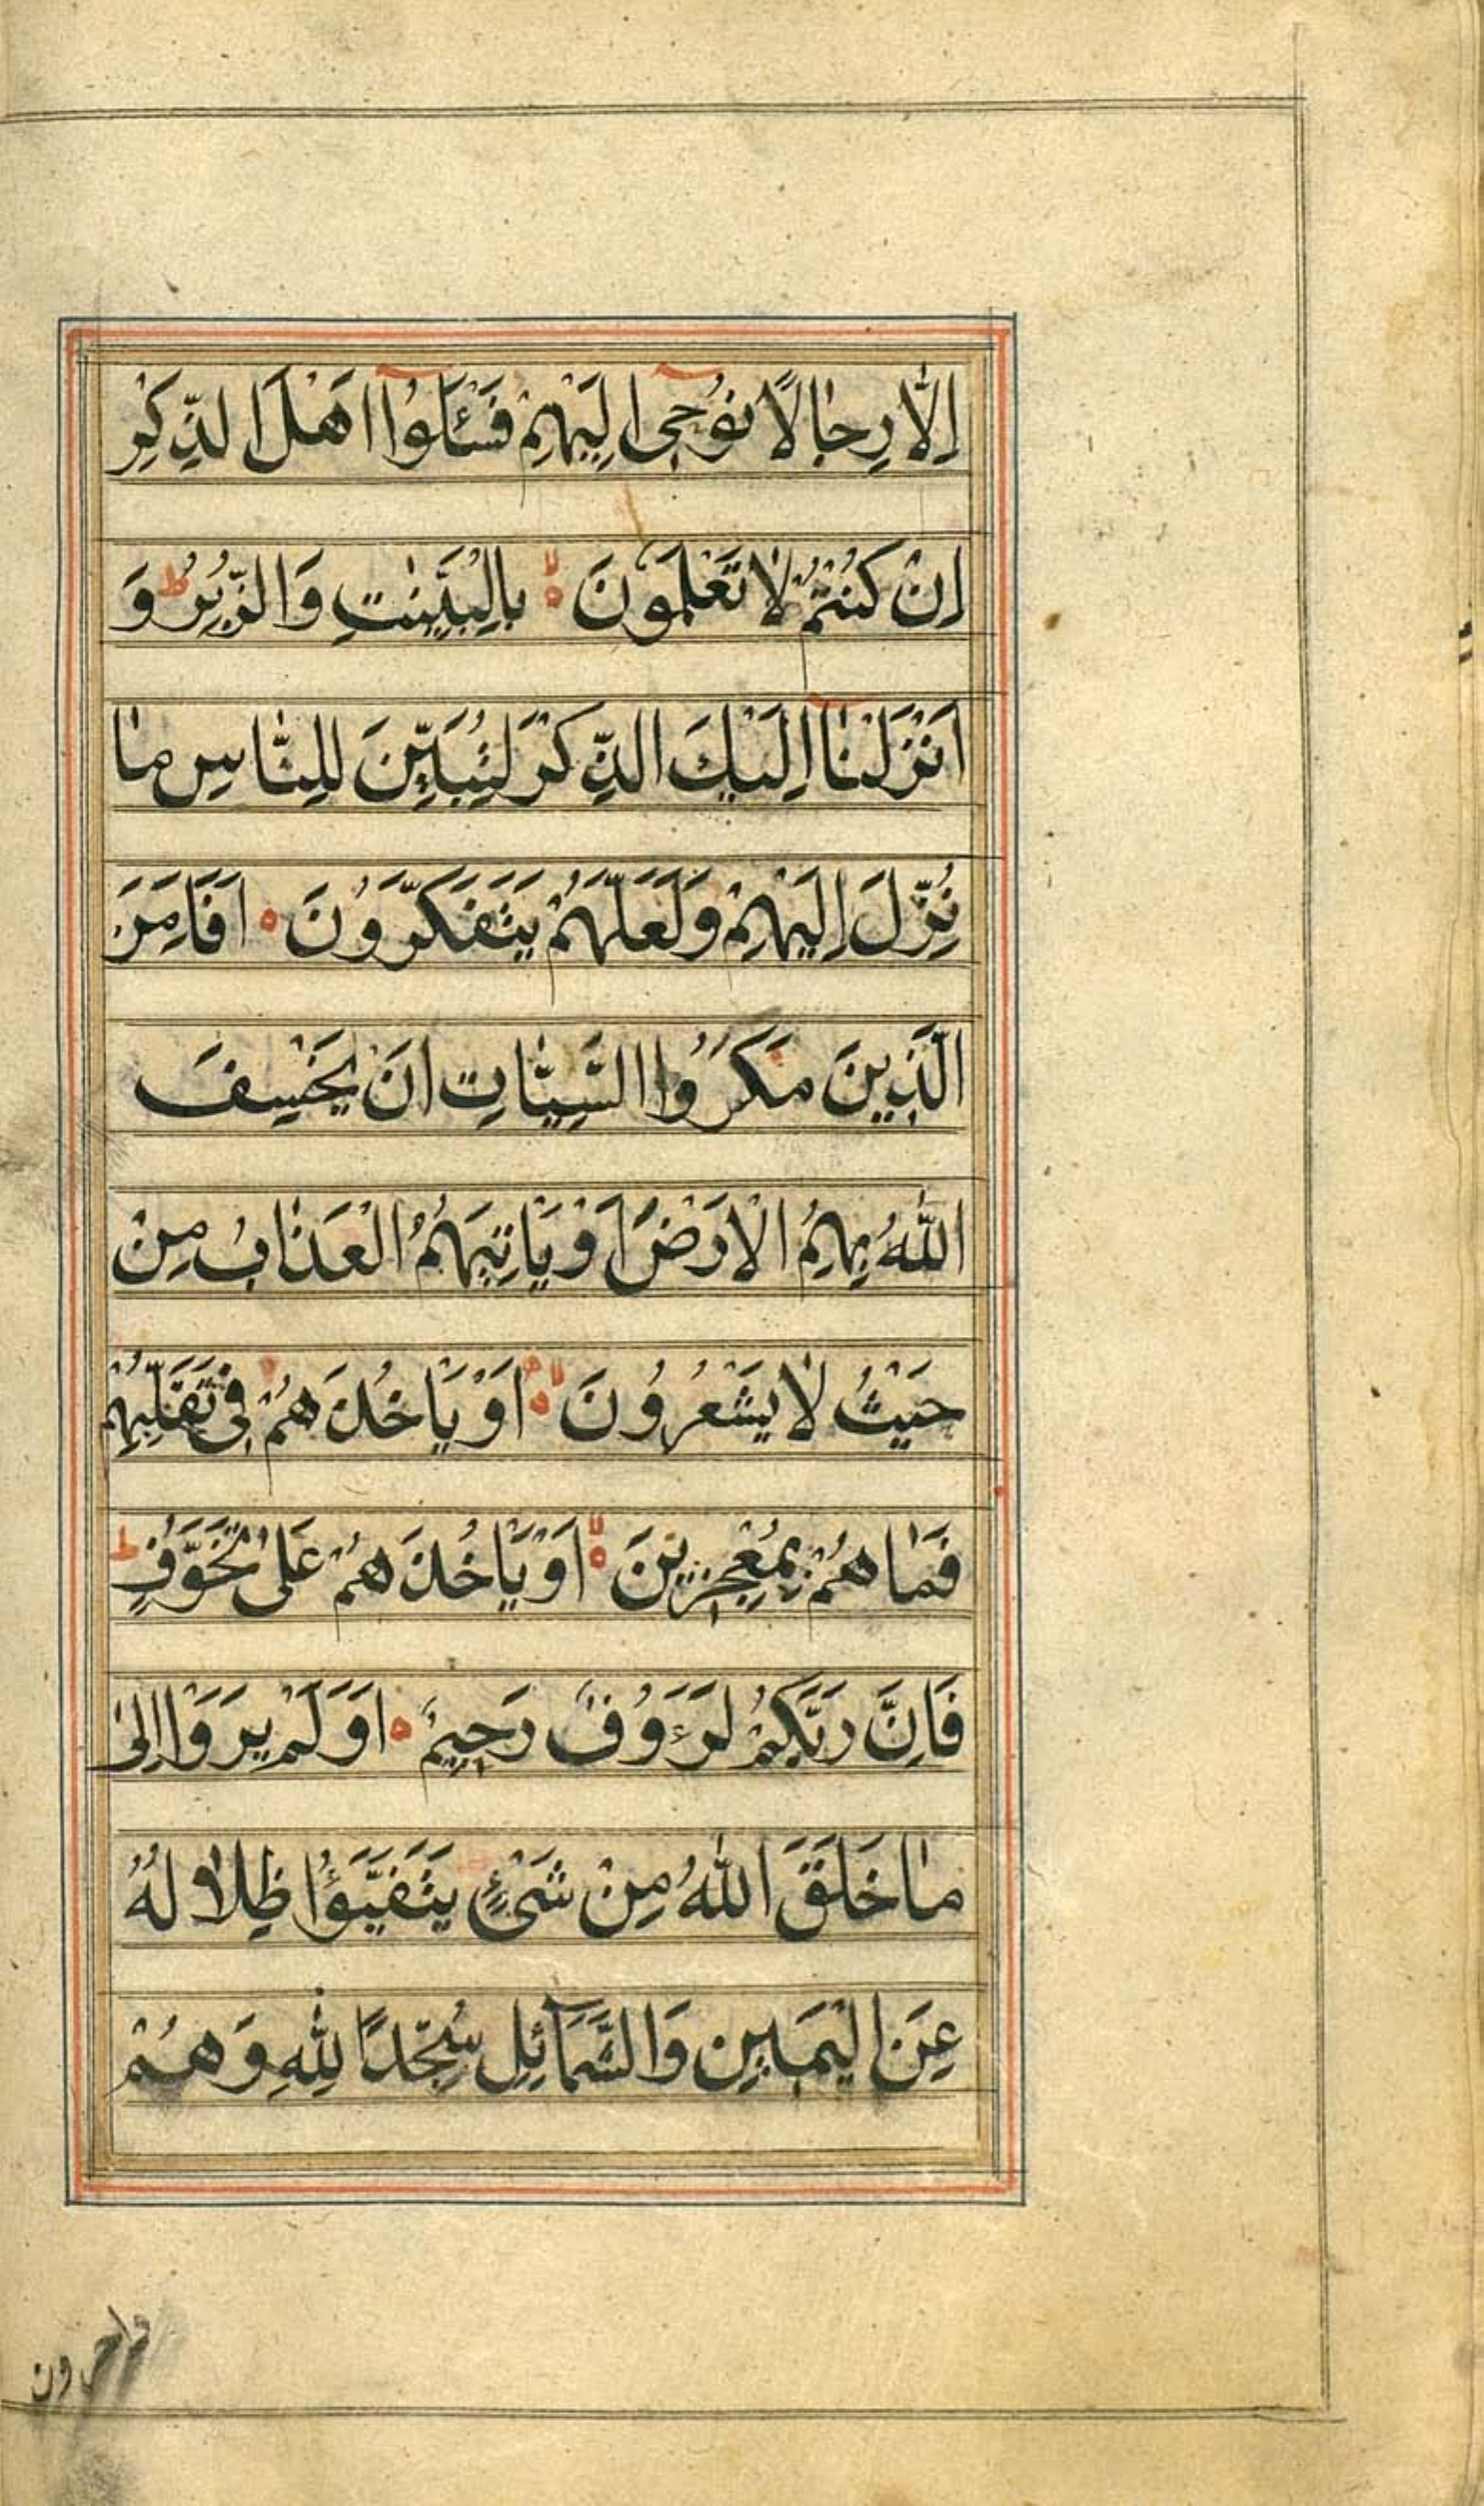 اِلّٰا رِجٰالًا نُوْحٖى اِلَيْهِمْ فَسْئَلُوْۤا اَهْلَ الذِّكْرِ
اِنْ كُنْتُمْ لٰا تَعْلَمُوْنَ ۙ بِالْبَيِّنٰتِ وَالزُّبُرِ ؕ وَ
اَنْزَلْنٰاۤ اِلَيْكَ الذِّكْرَ لِتُبَيِّنَ لِلنّٰاسِ مٰا
نُزِّلَ اِلَيْهِمْ وَلَعَلَّهُمْ يَتَفَكَّرُوْنَ ه اَفَاَمِنَ
الَّذِيْنَ مَكَرُوا السَّيِّئٰاتِ اَنْ يَخْسِفَ
اللّٰهُ بِهِمُ الْاَرْضَ اَوْ يَاْتِيَهُمُ الْعَذٰابُ مِنْ
حَيْثُ لٰا يَشْعُرُوْنَ ۙ اَوْ يَاْخُذَهُمْ فِىْ تَقَلُّبِهِمْ
فَمٰا هُمْ بِمُعْجِزِيْنَ ۙ اَوْ يَاْخُذَهُمْ عَلىٰ تَخَوُّفٍ ؕ
فَاِنَّ رَبَّكُمْ لَرَءَوُفٌ رَحِيْمٌ ه اَوَلَمْ يَرَوْا اِلىٰ
مٰا خَلَقَ اللّٰهُ مِنْ شَىْءٍ يَتَفَيَّؤُا ظِلٰالُهُ
عَنِ الْيَمٖيْنِ وَالشَّمَاۤئِلِ سُجَّدًا لِلّٰهِ وَهُمْ
داخرون